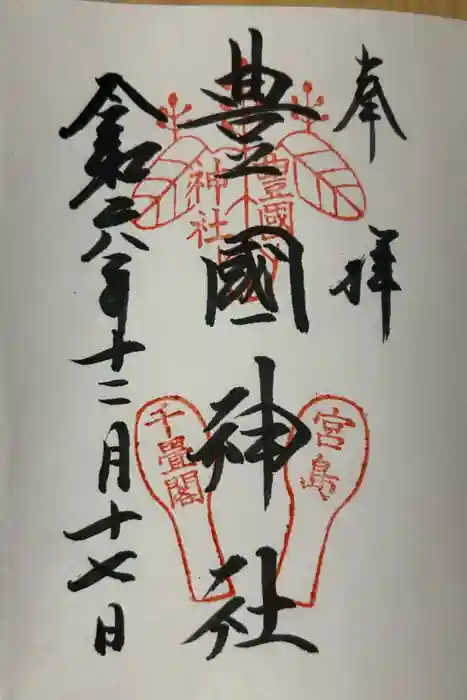 奉拝
豊國神社
令和六年十二月十七日
豊國
神社
宮島
千畳閣